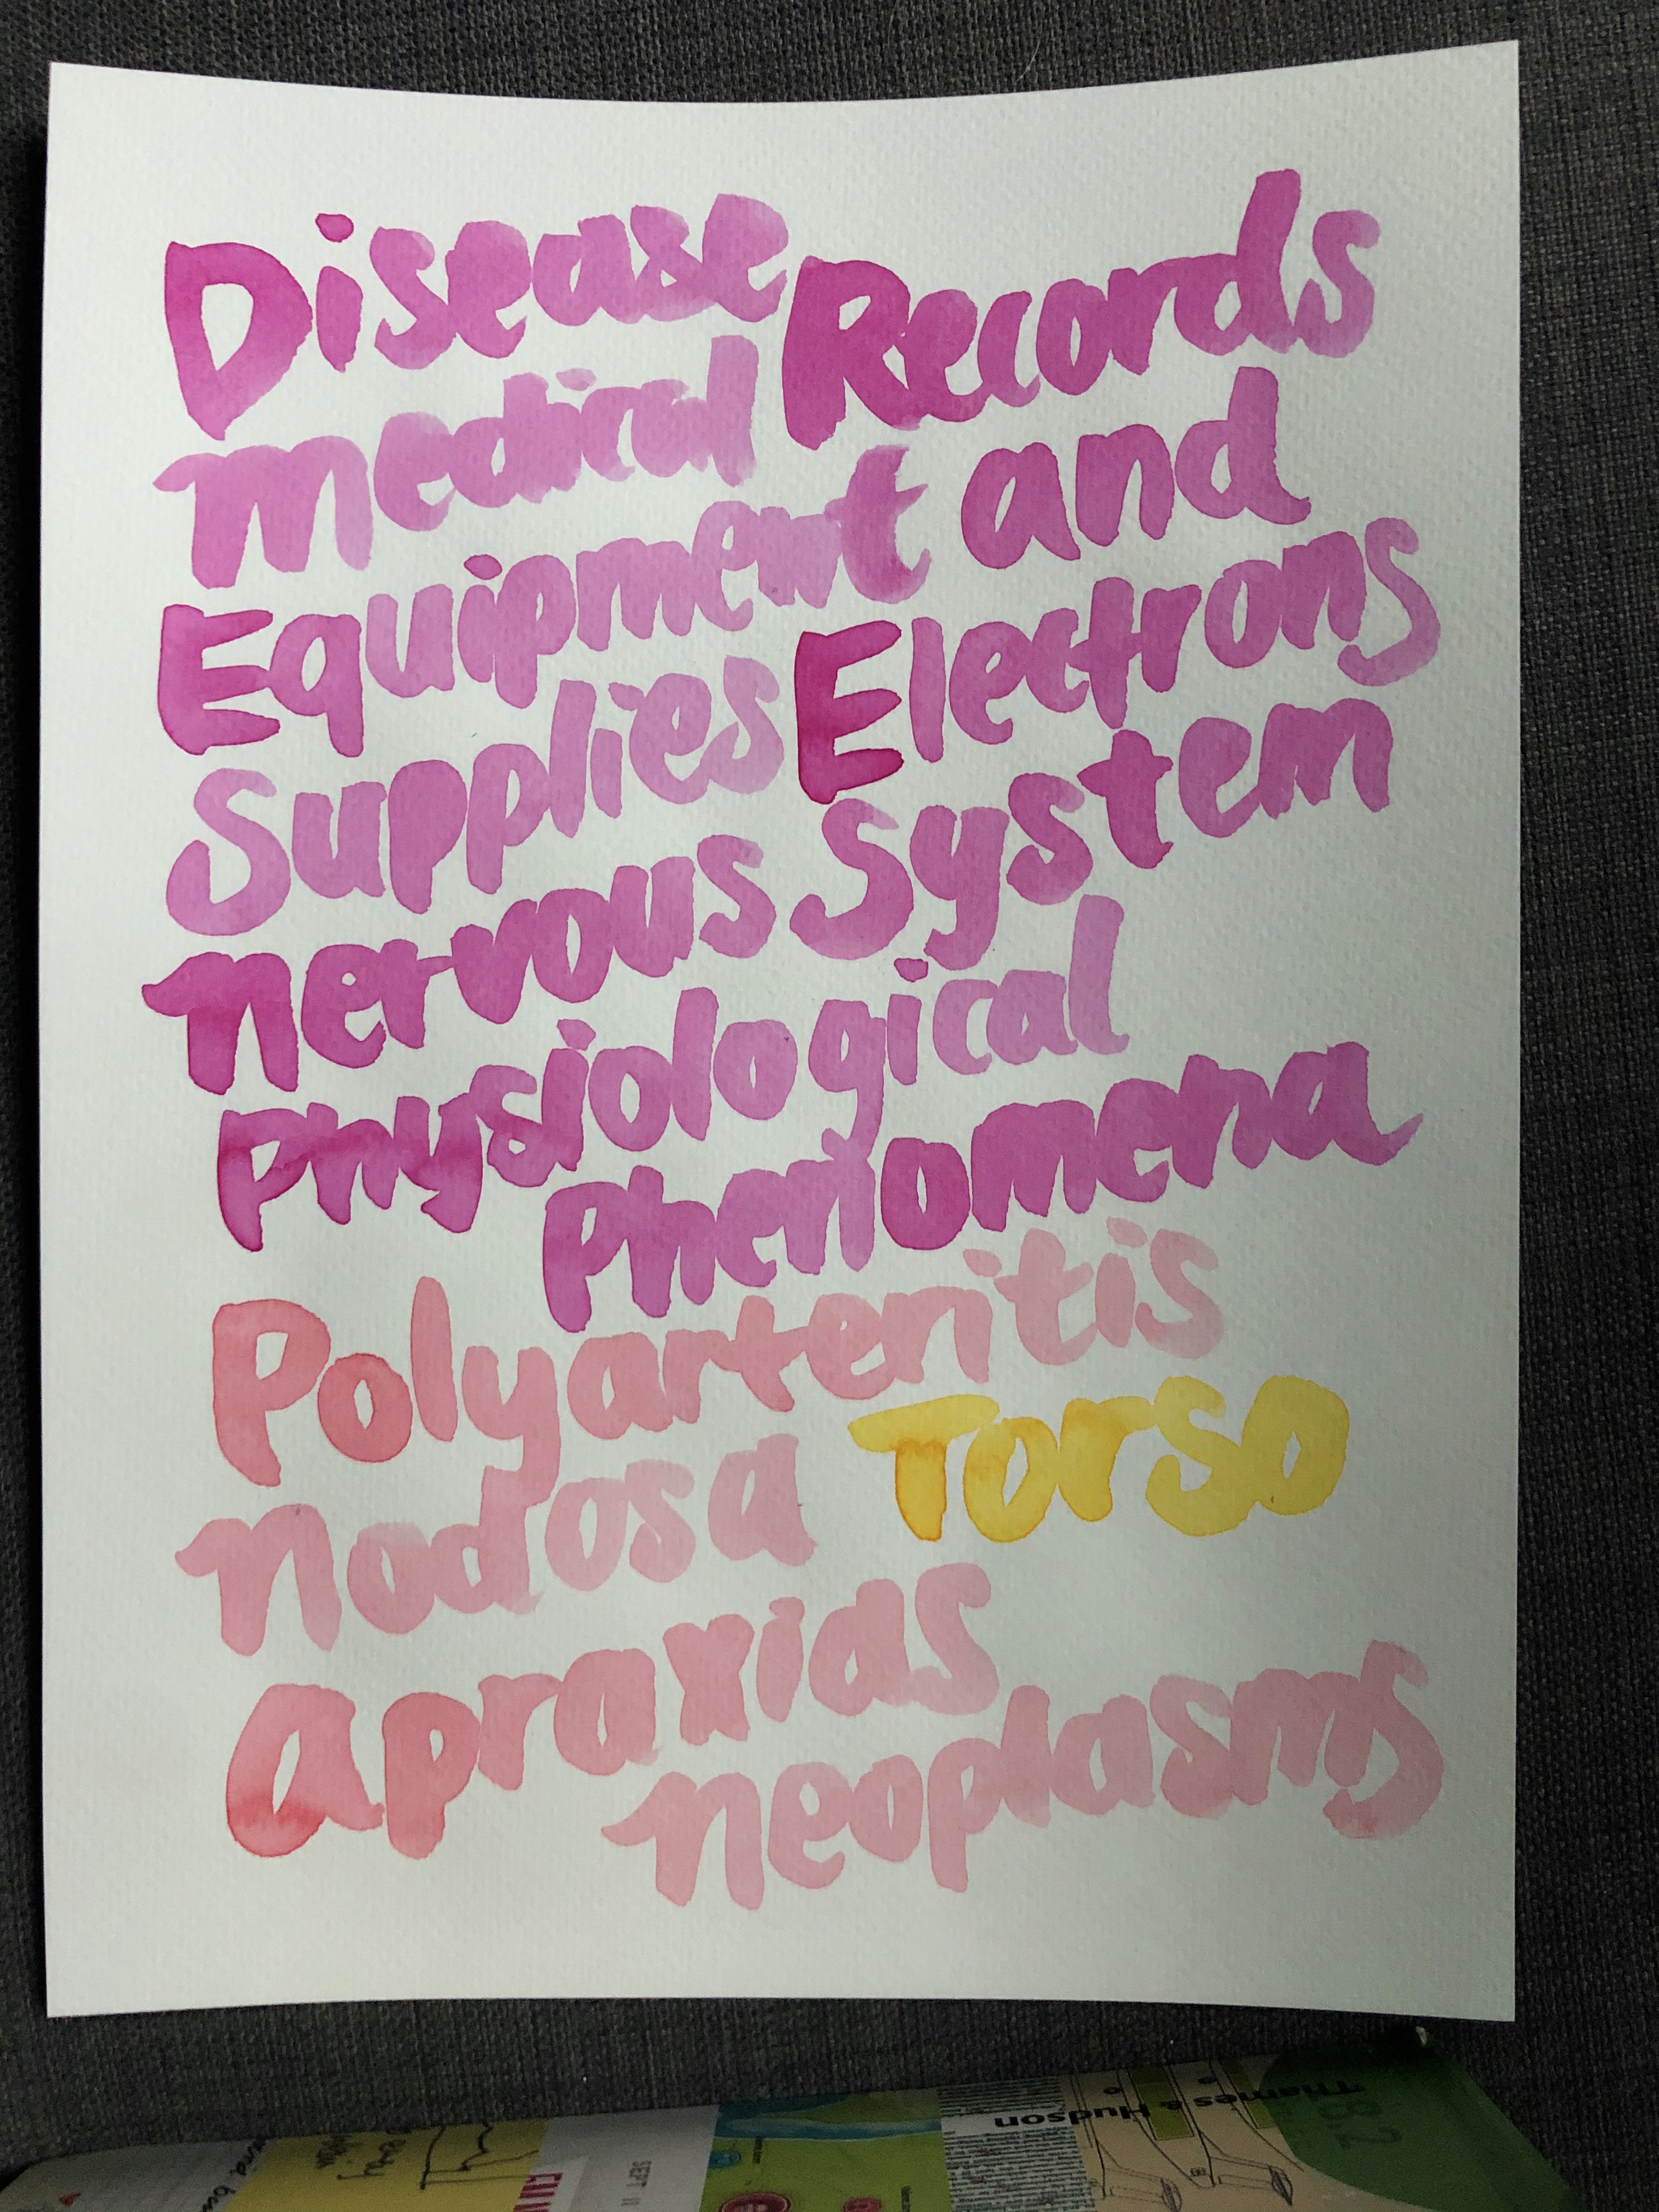 Disease Records
medical
Equipment and
Supplies Electrons
nervous System
Physiological
Phenomena
Polyarteritis
nodosa Torso
apraxias
neoplasms
Thames & Hudson
SEPT